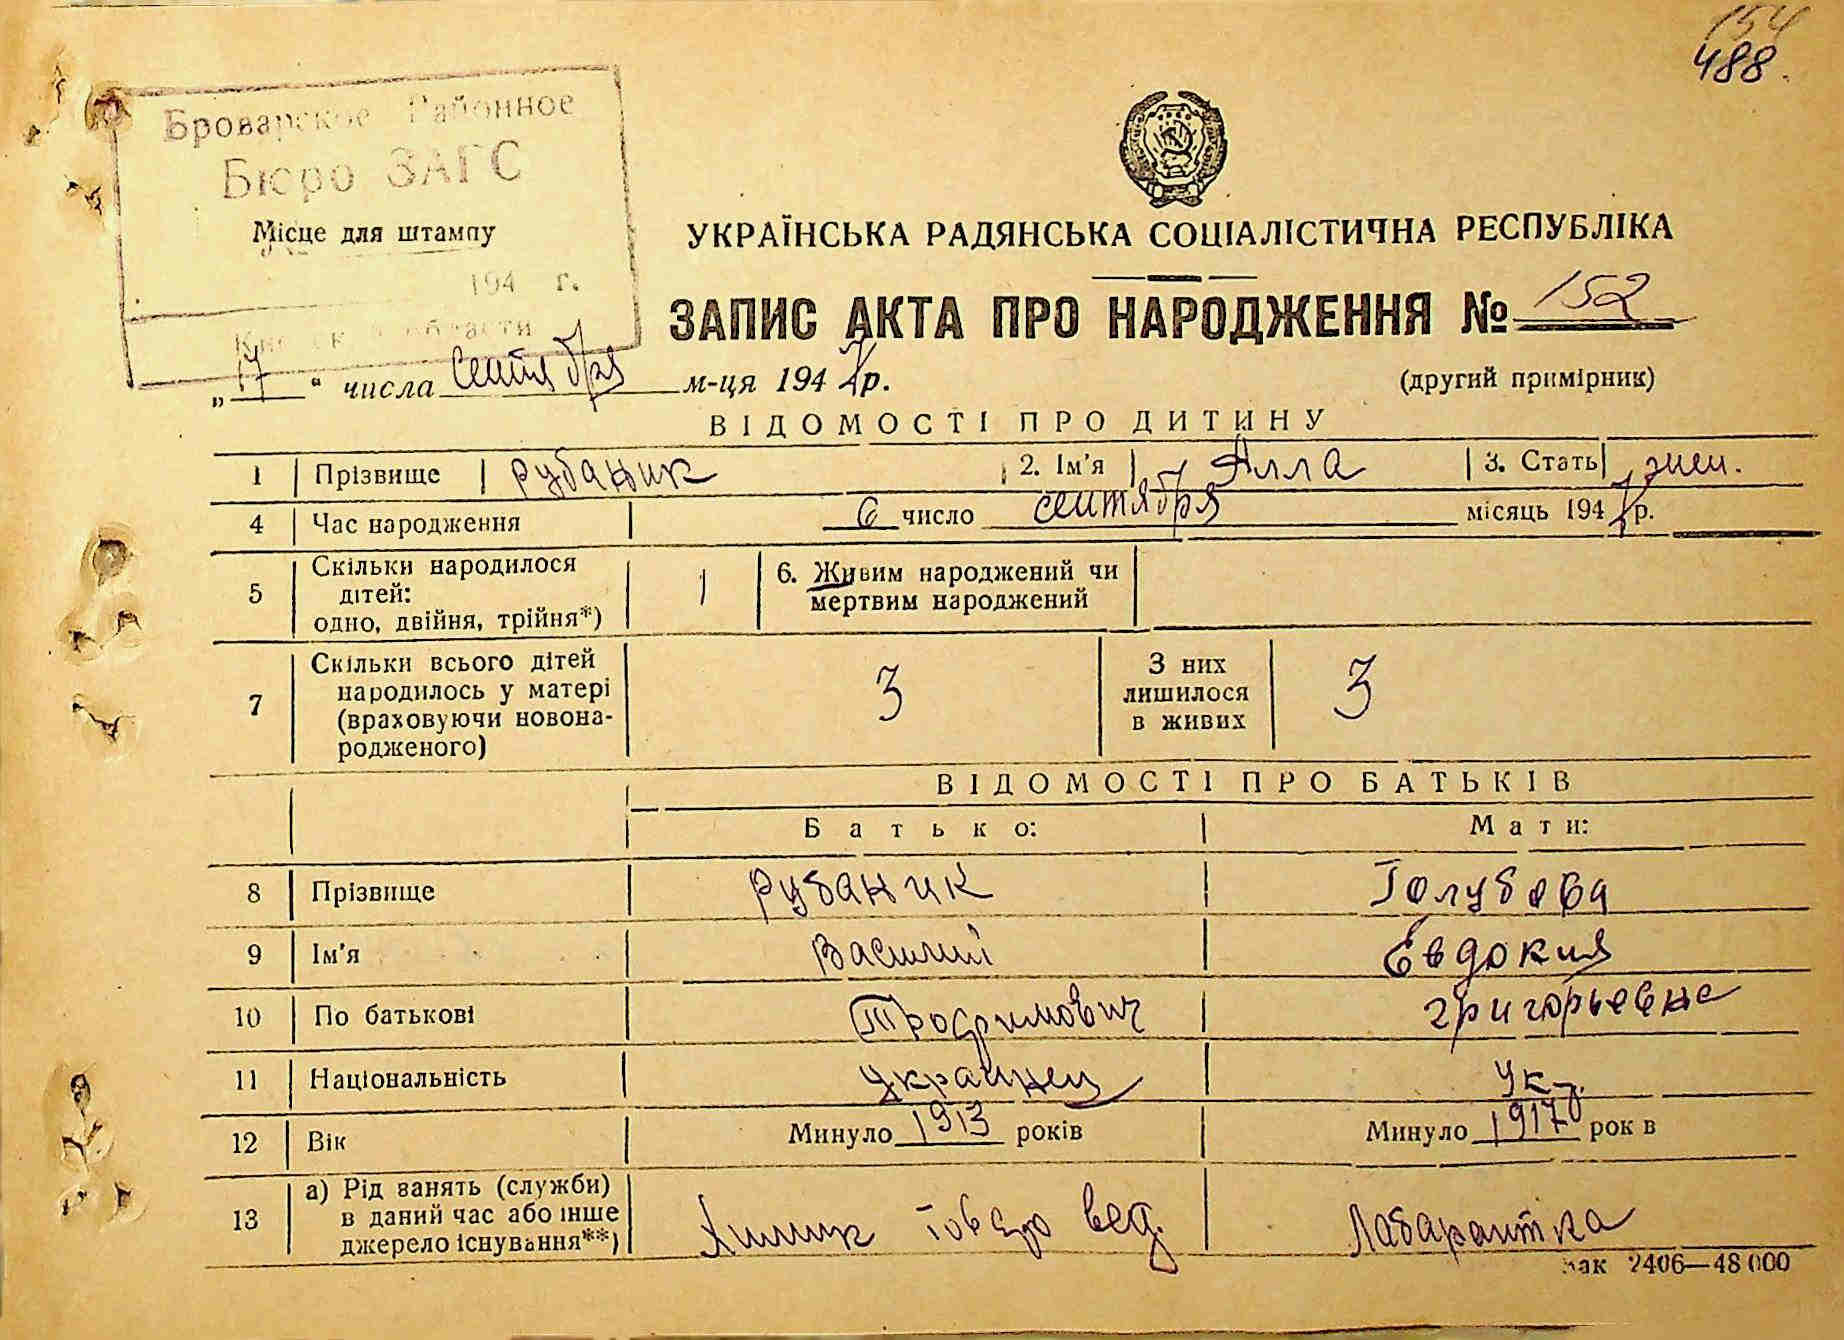 154
488.
Броварское Районное
Бюро ЗАГС
Місце для штампу
194 г.
Киевской области
УКРАЇНСЬКА РАДЯНСЬКА СОЦІАЛІСТИЧНА РЕСПУБЛІКА
ЗАПИС АКТА ПРО НАРОДЖЕННЯ № 152
„17“ числа сентября м-ця 194 р.
(другий примірник)
ВІДОМОСТІ ПРО ДИТИНУ
1 Прізвище Рубаник 2. Ім'я Алла 3. Стать жен.
4 Час народження 6 число сентября місяць 194 р.
5 Скільки народилося дітей: одно, двійня, трійня*) 1 6. Живим народжений чи мертвим народжений
7 Скільки всього дітей народилось у матері (враховуючи новонародженого) 3 З них лишилося в живих 3
ВІДОМОСТІ ПРО БАТЬКІВ
Батько: Мати:
8 Прізвище Рубаник Голубова
9 Ім'я Василий Евдокия
10 По батькові Трофимович Григорьевна
11 Національність Украинец Укр.
12 Вік Минуло 1913 років Минуло 1917 рок в
13 а) Рід занять (служби) в даний час або інше джерело існування**) Химик товаро вед. Лабарантка
зак 2406—48 000